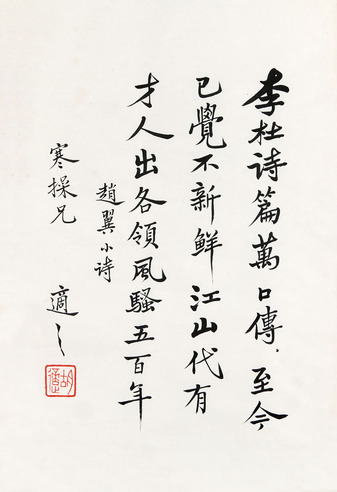 李杜诗篇萬口傳、至今
已覺不新鮮江山代有
才人出各領風騷五百年
趙翼小诗
寒操兄
適之
胡適